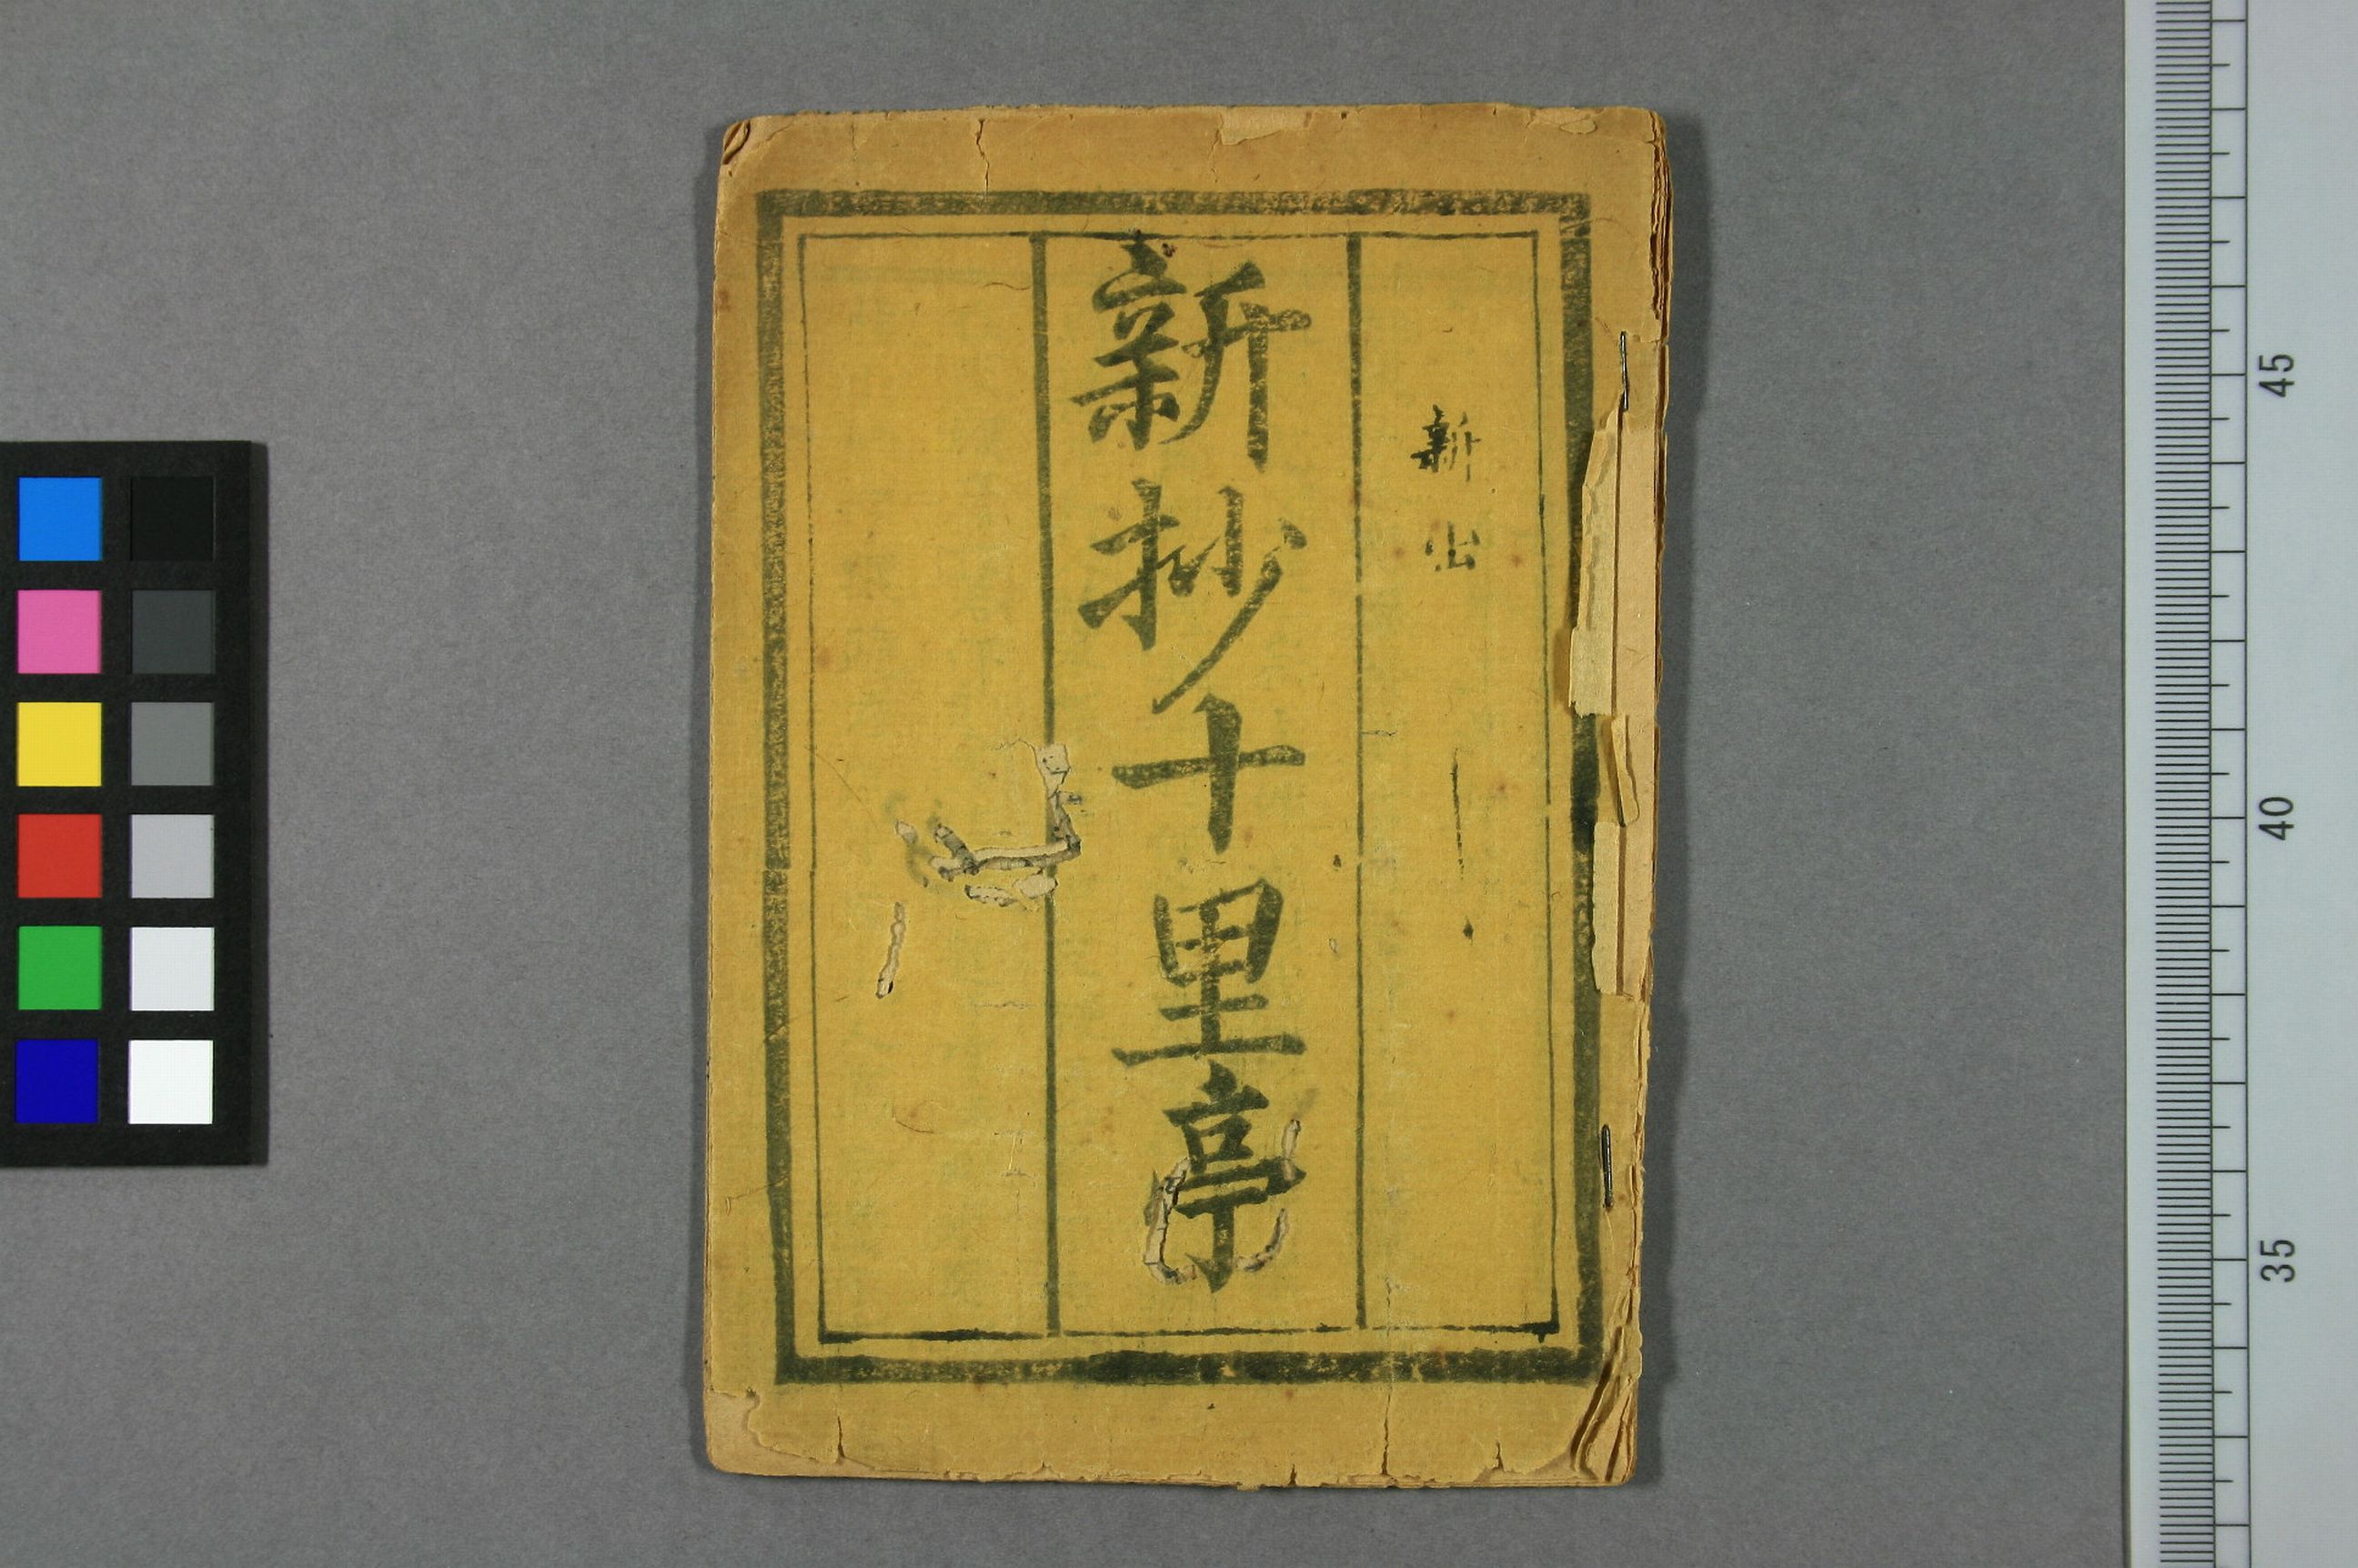 新出
新抄十里亭
45
40
35